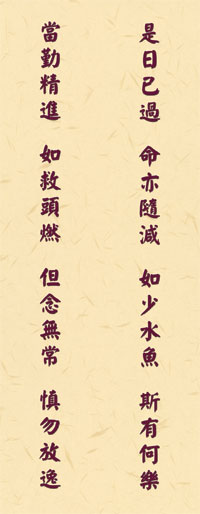 是日已過　命亦隨減　如少水魚　斯有何樂
當勤精進　如救頭燃　但念無常　慎勿放逸